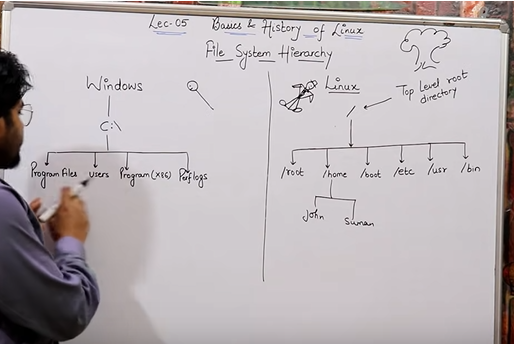 Lec-05 Basics & History of Linux
File System Hierarchy
Windows
C:\
Program Files users Program(x86) Perflogs
Linux
Top Level root
directory
/
/root /home /boot /etc /usr /bin
John Suman